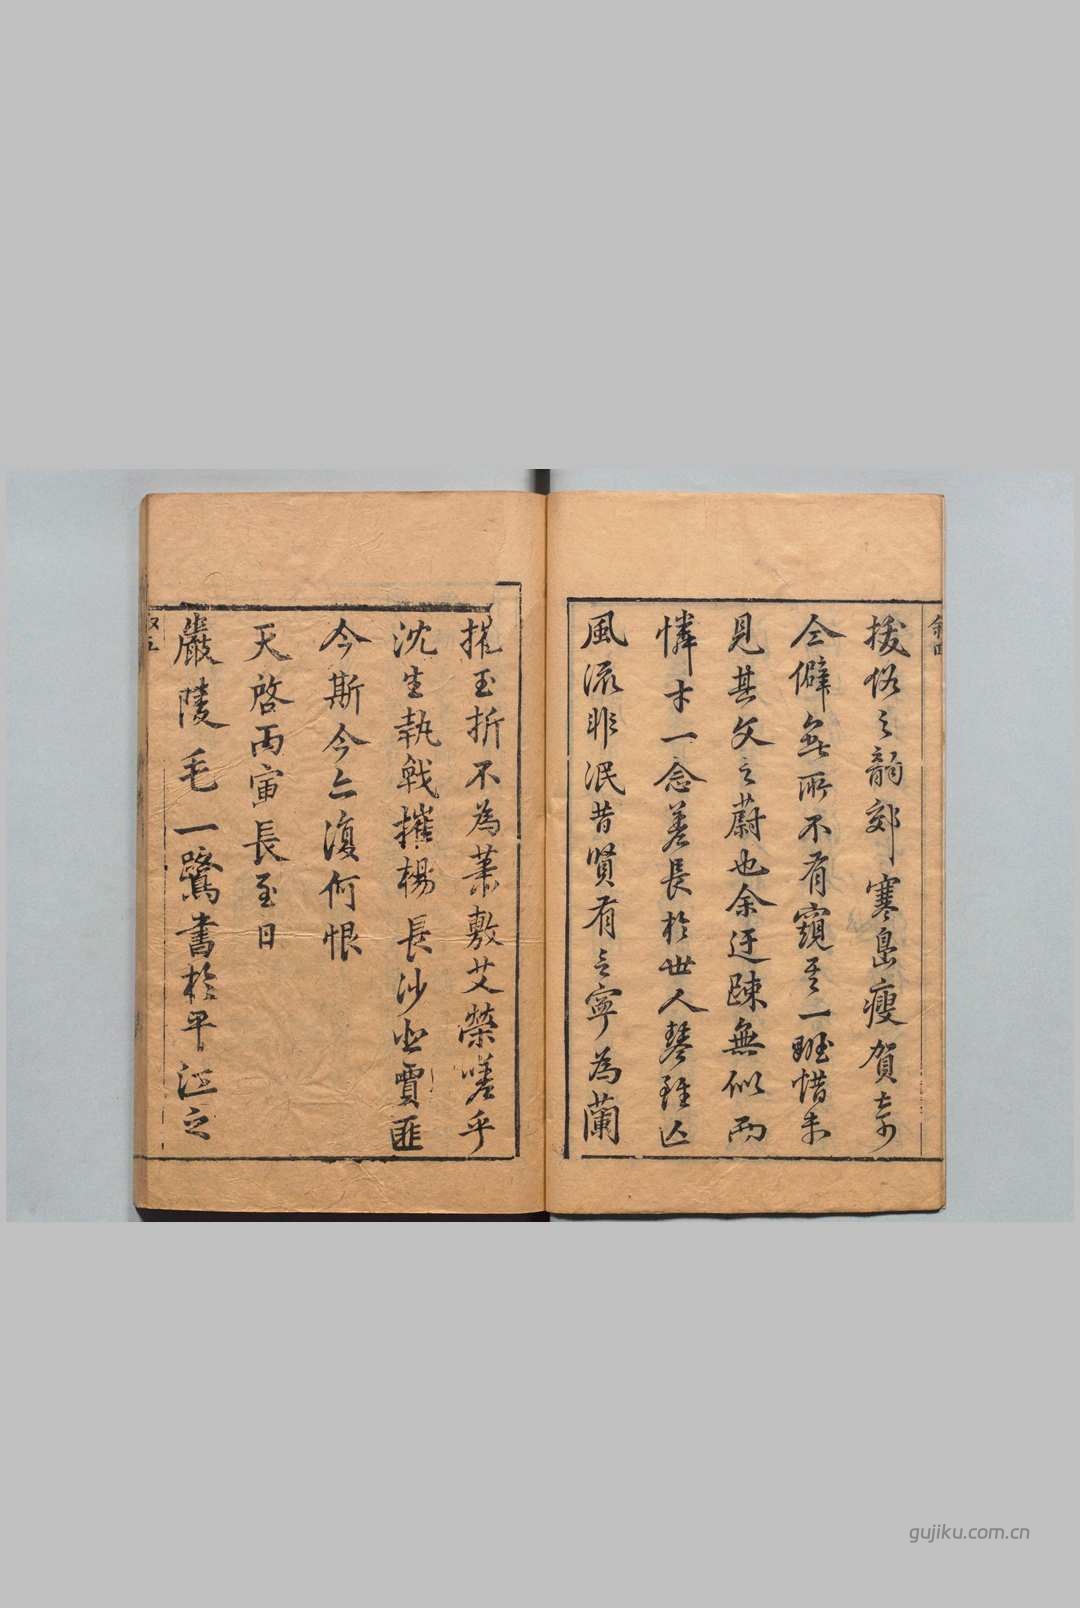 叙四
拔俗之韻郊寒島瘦賀奇
仝僻無所不有窺其一斑惜未
見其文之蔚也余迂踈無似而
憐才一念差長於世人琴雖亡
風流非泯昔賢有言寧為蘭
摧玉折不為蕭敷艾榮嗟乎
沈生執戟摧楊長沙悲賈匪
今斯今亦復何恨
天啓丙寅長至日
嚴陵毛一鷺書於平江之
叙五
gujiku.com.cn